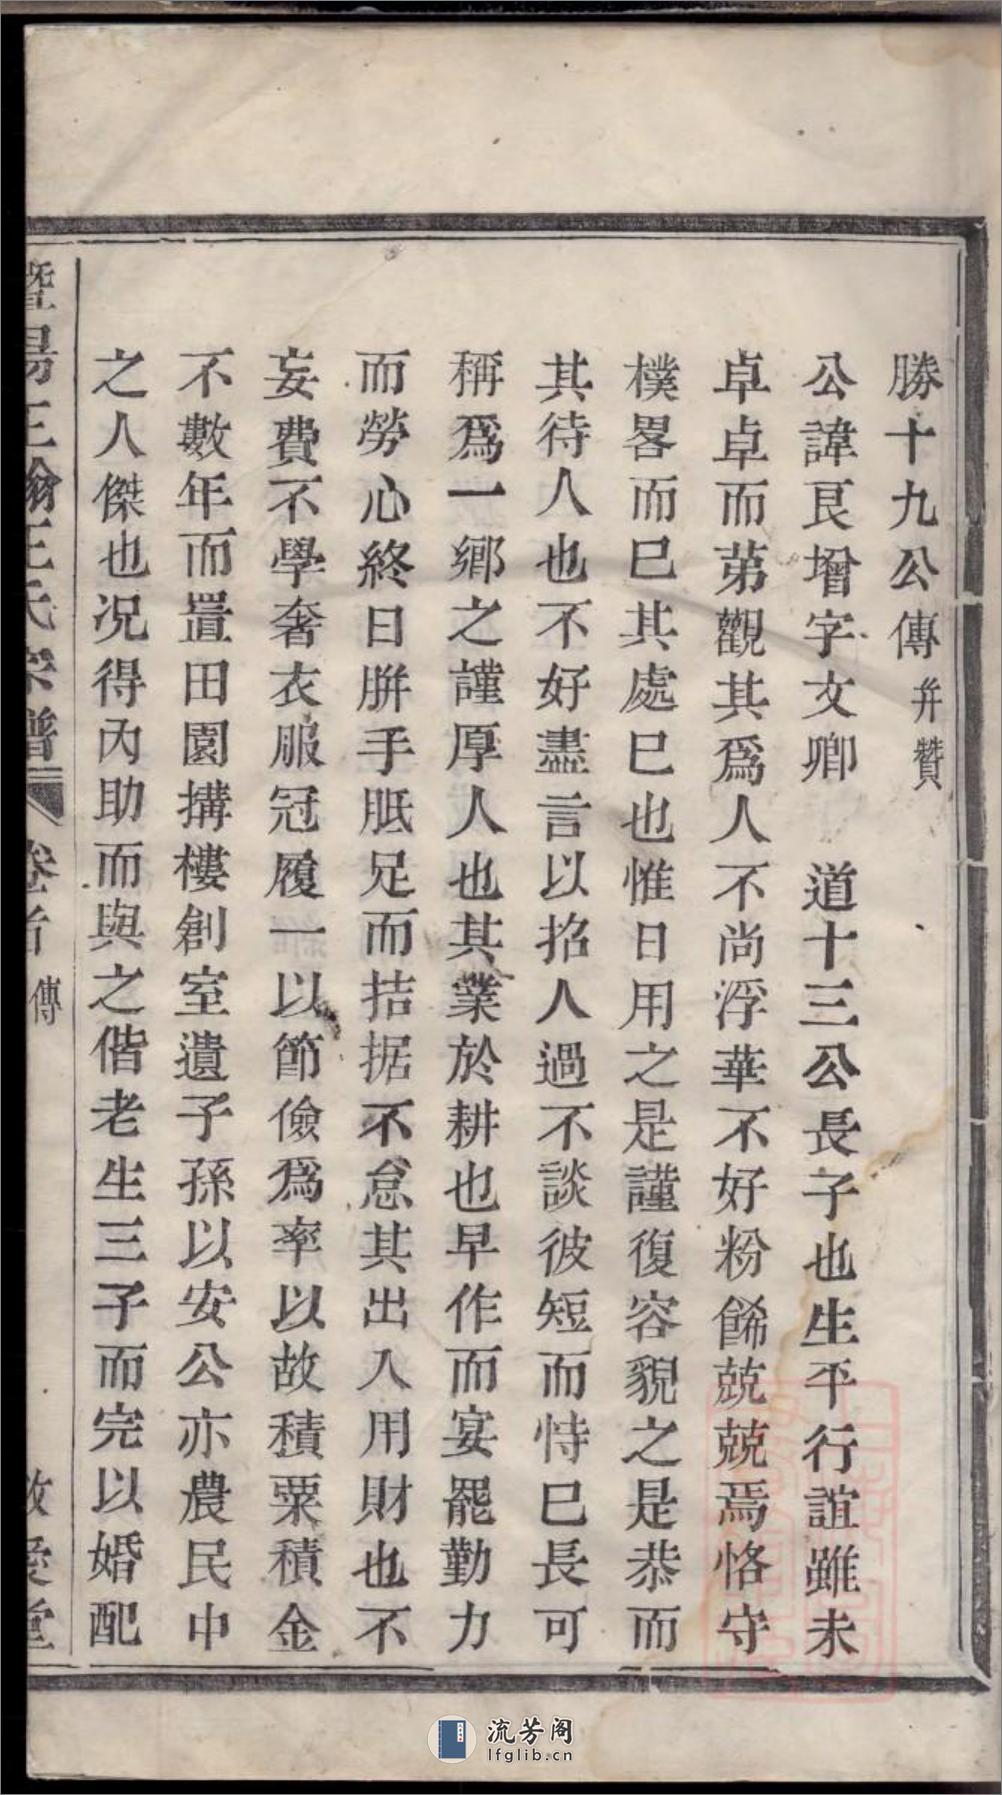 勝十九公傳 并贊
公諱艮增字文卿 道十三公長子也生平行誼雖未
卓卓而苐觀其爲人不尚浮華不好粉餙兢兢焉恪守
樸畧而已其處已也惟日用之是謹復容貌之是恭而
其待人也不好盡言以招人過不談彼短而恃已長可
稱爲一鄉之謹厚人也其業於耕也早作而宴罷勤力
而勞心終日胼手胝足而拮据不怠其出入用財也不
妄費不學奢衣服冠履一以節儉爲率以故積粟積金
不數年而置田園搆樓創室遺子孫以安公亦農民中
之人傑也况得內助而與之偕老生三子而完以婚配
暨陽王氏宗譜 卷首 傳 敬愛堂
流芳阁
lfglib.cn